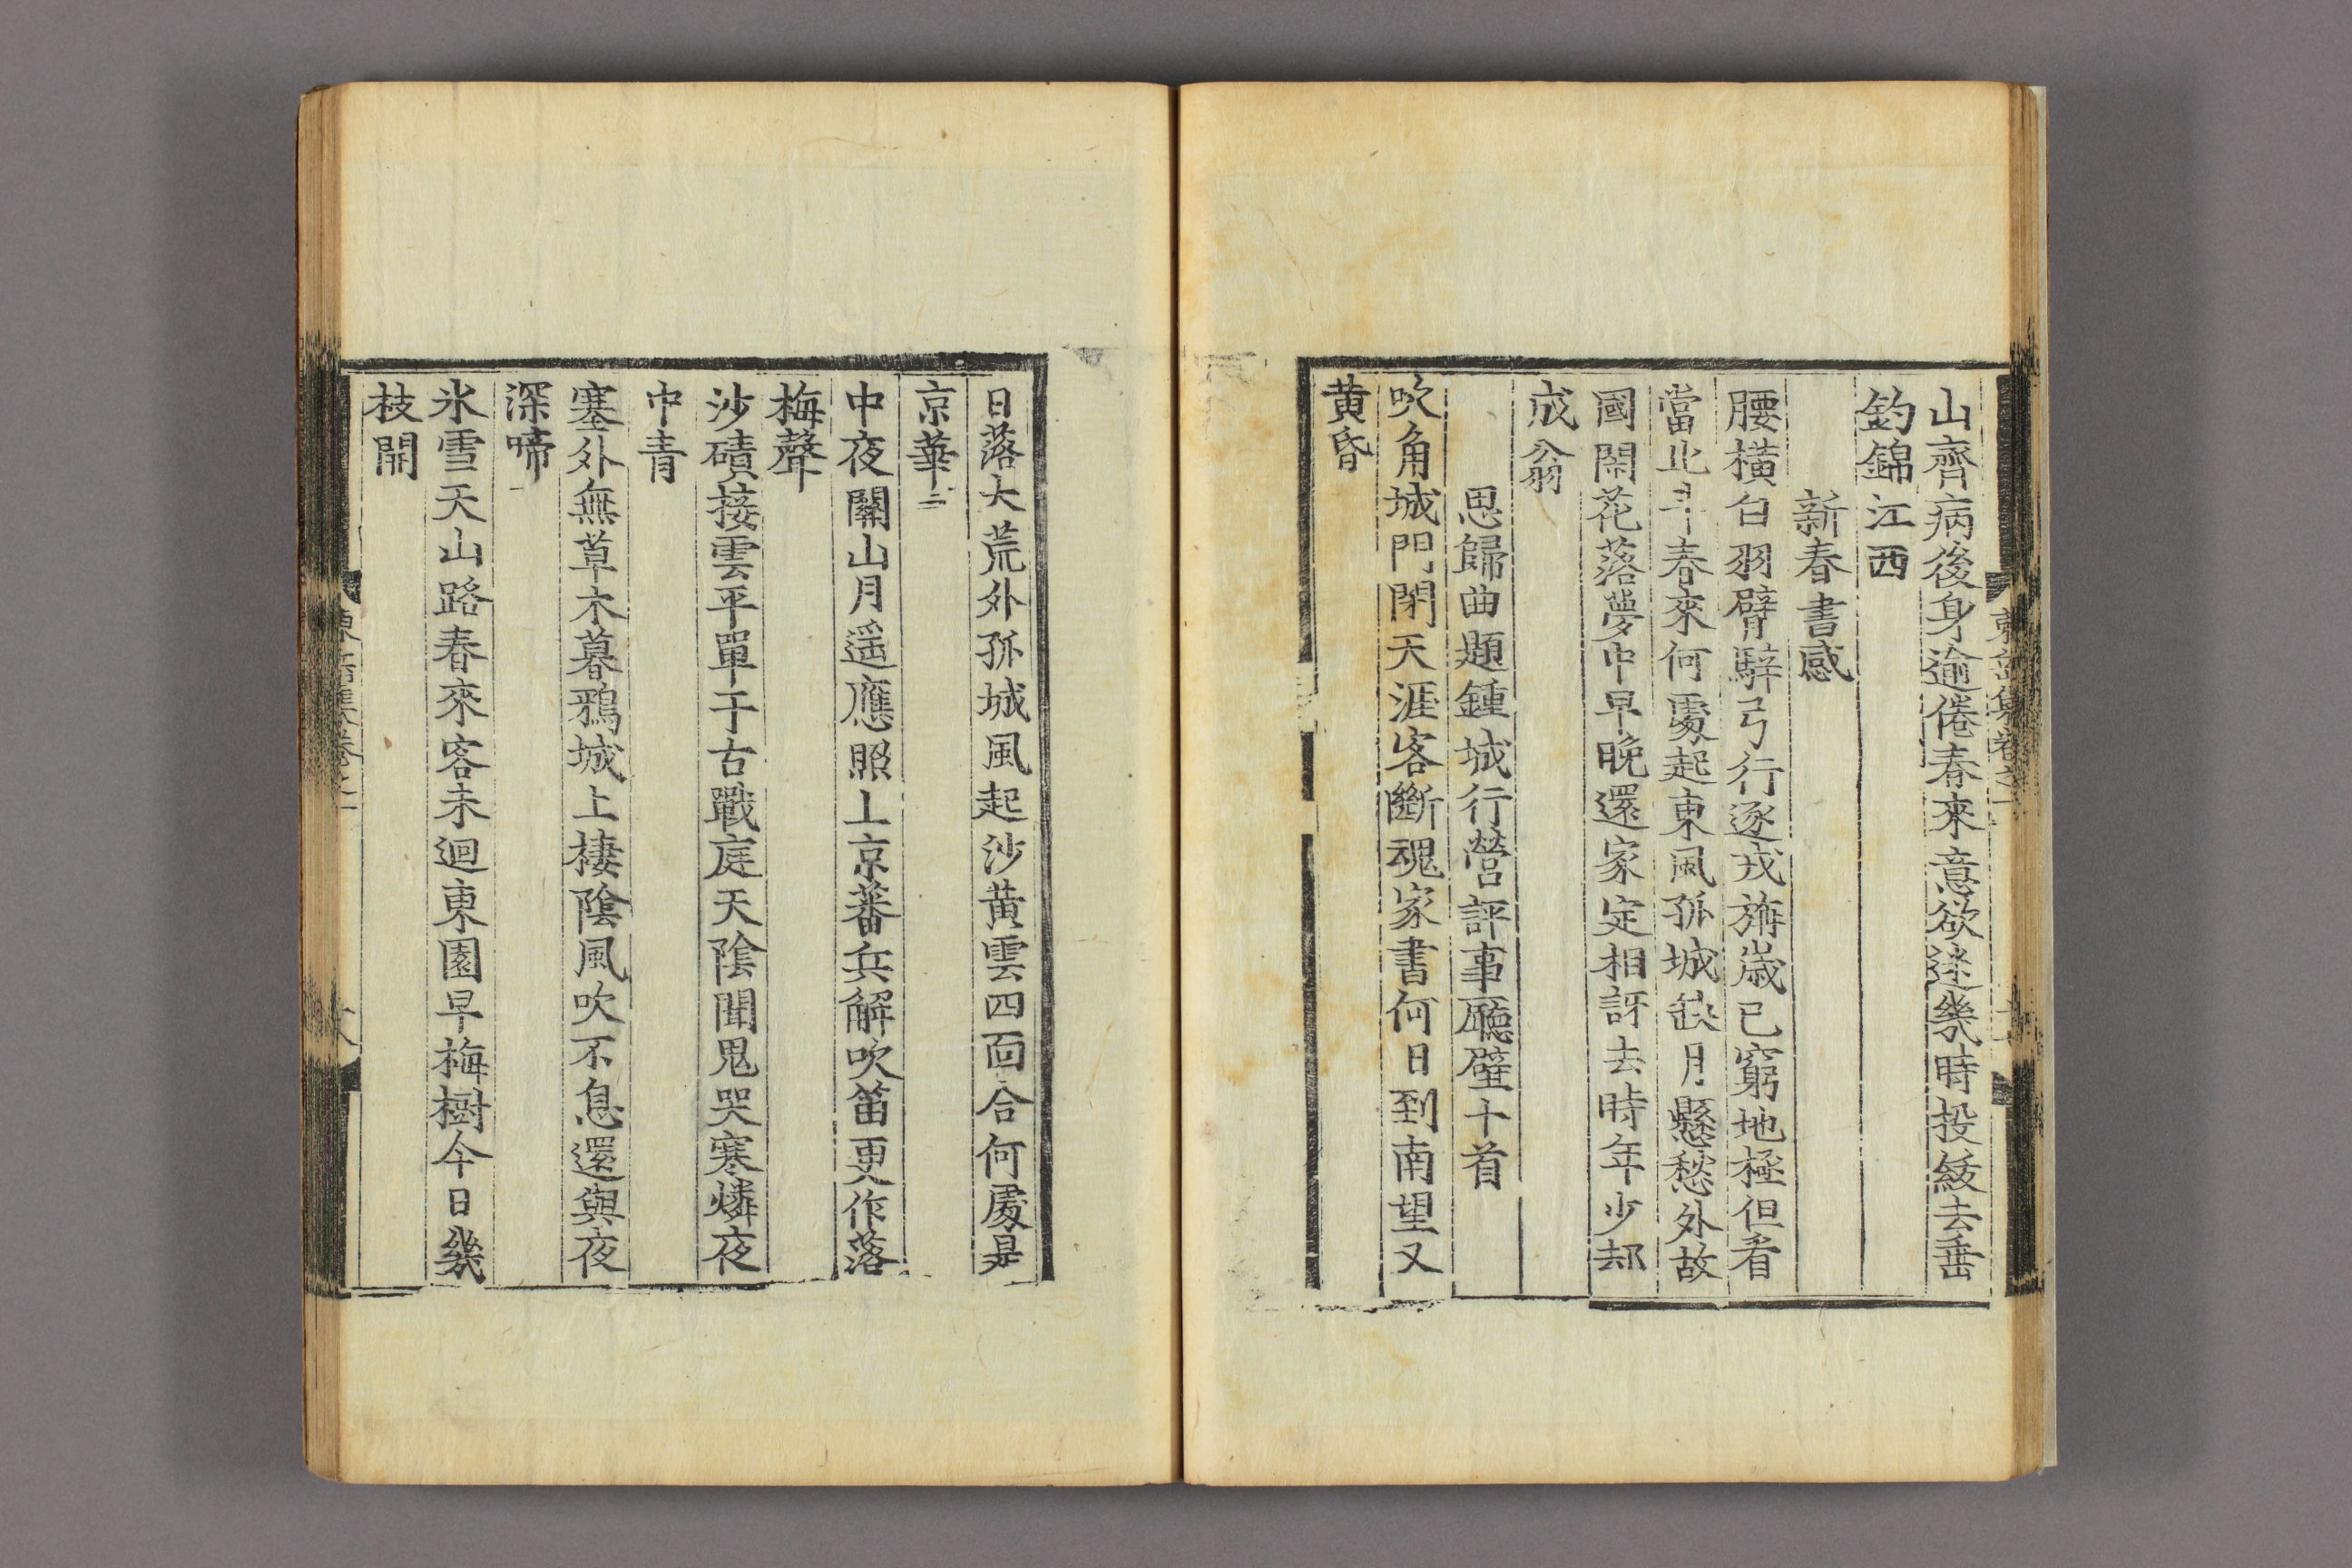 山齊病後身逾倦春來意欲迷幾時投紱去垂
釣錦江西
新春書感
腰橫白羽臂騂弓行逐戎旃歲已窮地極但看
當北斗春來何處起東風孤城缺月懸愁外故
國閑花落夢中早晚還家定相訝去時年少却
成翁
思歸曲題鍾城行營評事廳壁十首
吹角城門閉天涯客斷魂家書何日到南望又
黃昏
日落大荒外孤城風起沙黃雲四面合何處是
京華二
中夜關山月遥應照上京蕃兵解吹笛更作落
梅聲
沙磧接雲平單于古戰庭天陰聞鬼哭寒燐夜
中青
塞外無草木暮鴉城上棲陰風吹不息還與夜
深啼
氷雪天山路春來客未迴東園早梅樹今日幾
枝開